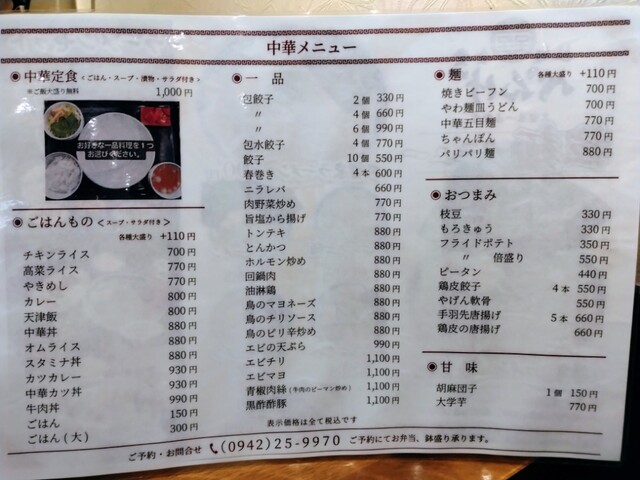 中華メニュー
◉ 中華定食 <ごはん・スープ・漬物・サラダ付き>
※ご飯大盛り無料 1,000円
お好きな一品料理を1つ
お選びください。
◉ ごはんもの <スープ・サラダ付き>
各種大盛り +110円
チキンライス 700円
高菜ライス 770円
やきめし 770円
カレー 800円
天津飯 800円
中華丼 880円
オムライス 880円
スタミナ丼 880円
カツカレー 930円
中華カツ丼 930円
牛肉丼 990円
ごはん 150円
ごはん(大) 300円
◉ 一品
包餃子 2個 330円
〃 4個 660円
〃 6個 990円
包水餃子 4個 770円
餃子 10個 550円
春巻き 4本 600円
ニラレバ 660円
肉野菜炒め 770円
旨塩から揚げ 770円
トンテキ 880円
とんかつ 880円
ホルモン炒め 880円
回鍋肉 880円
油淋鶏 880円
鳥のマヨネーズ 880円
鳥のチリソース 880円
鳥のピリ辛炒め 880円
エビの天ぷら 990円
エビチリ 1,100円
エビマヨ 1,100円
青椒肉絲(牛肉のピーマン炒め) 1,100円
黒酢酢豚 1,100円
◉ 麺 各種大盛り +110円
焼きビーフン 700円
やわ麺皿うどん 700円
中華五目麺 770円
ちゃんぽん 770円
パリパリ麺 880円
◉ おつまみ
枝豆 330円
もろきゅう 330円
フライドポテト 350円
〃 倍盛り 550円
ピータン 440円
鶏皮餃子 4本 550円
やげん軟骨 550円
手羽先唐揚げ 5本 660円
鶏皮の唐揚げ 660円
◉ 甘味
胡麻団子 1個 150円
大学芋 770円
表示価格は全て税込です
ご予約・お問合せ (0942)25-9970 ご予約にてお弁当、鉢盛り承ります。